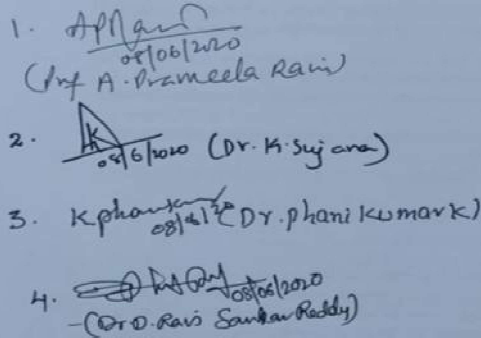 1. APRani
08/06/2020
(Prof A. Prameela Rani)
2. K
08/6/2020 (Dr. K. Sujana)
3. Kphankumar
08/6/20 (Dr. Phani Kumar K)
4.
08/06/2020
(Dr D. Ravi Sankar Reddy)